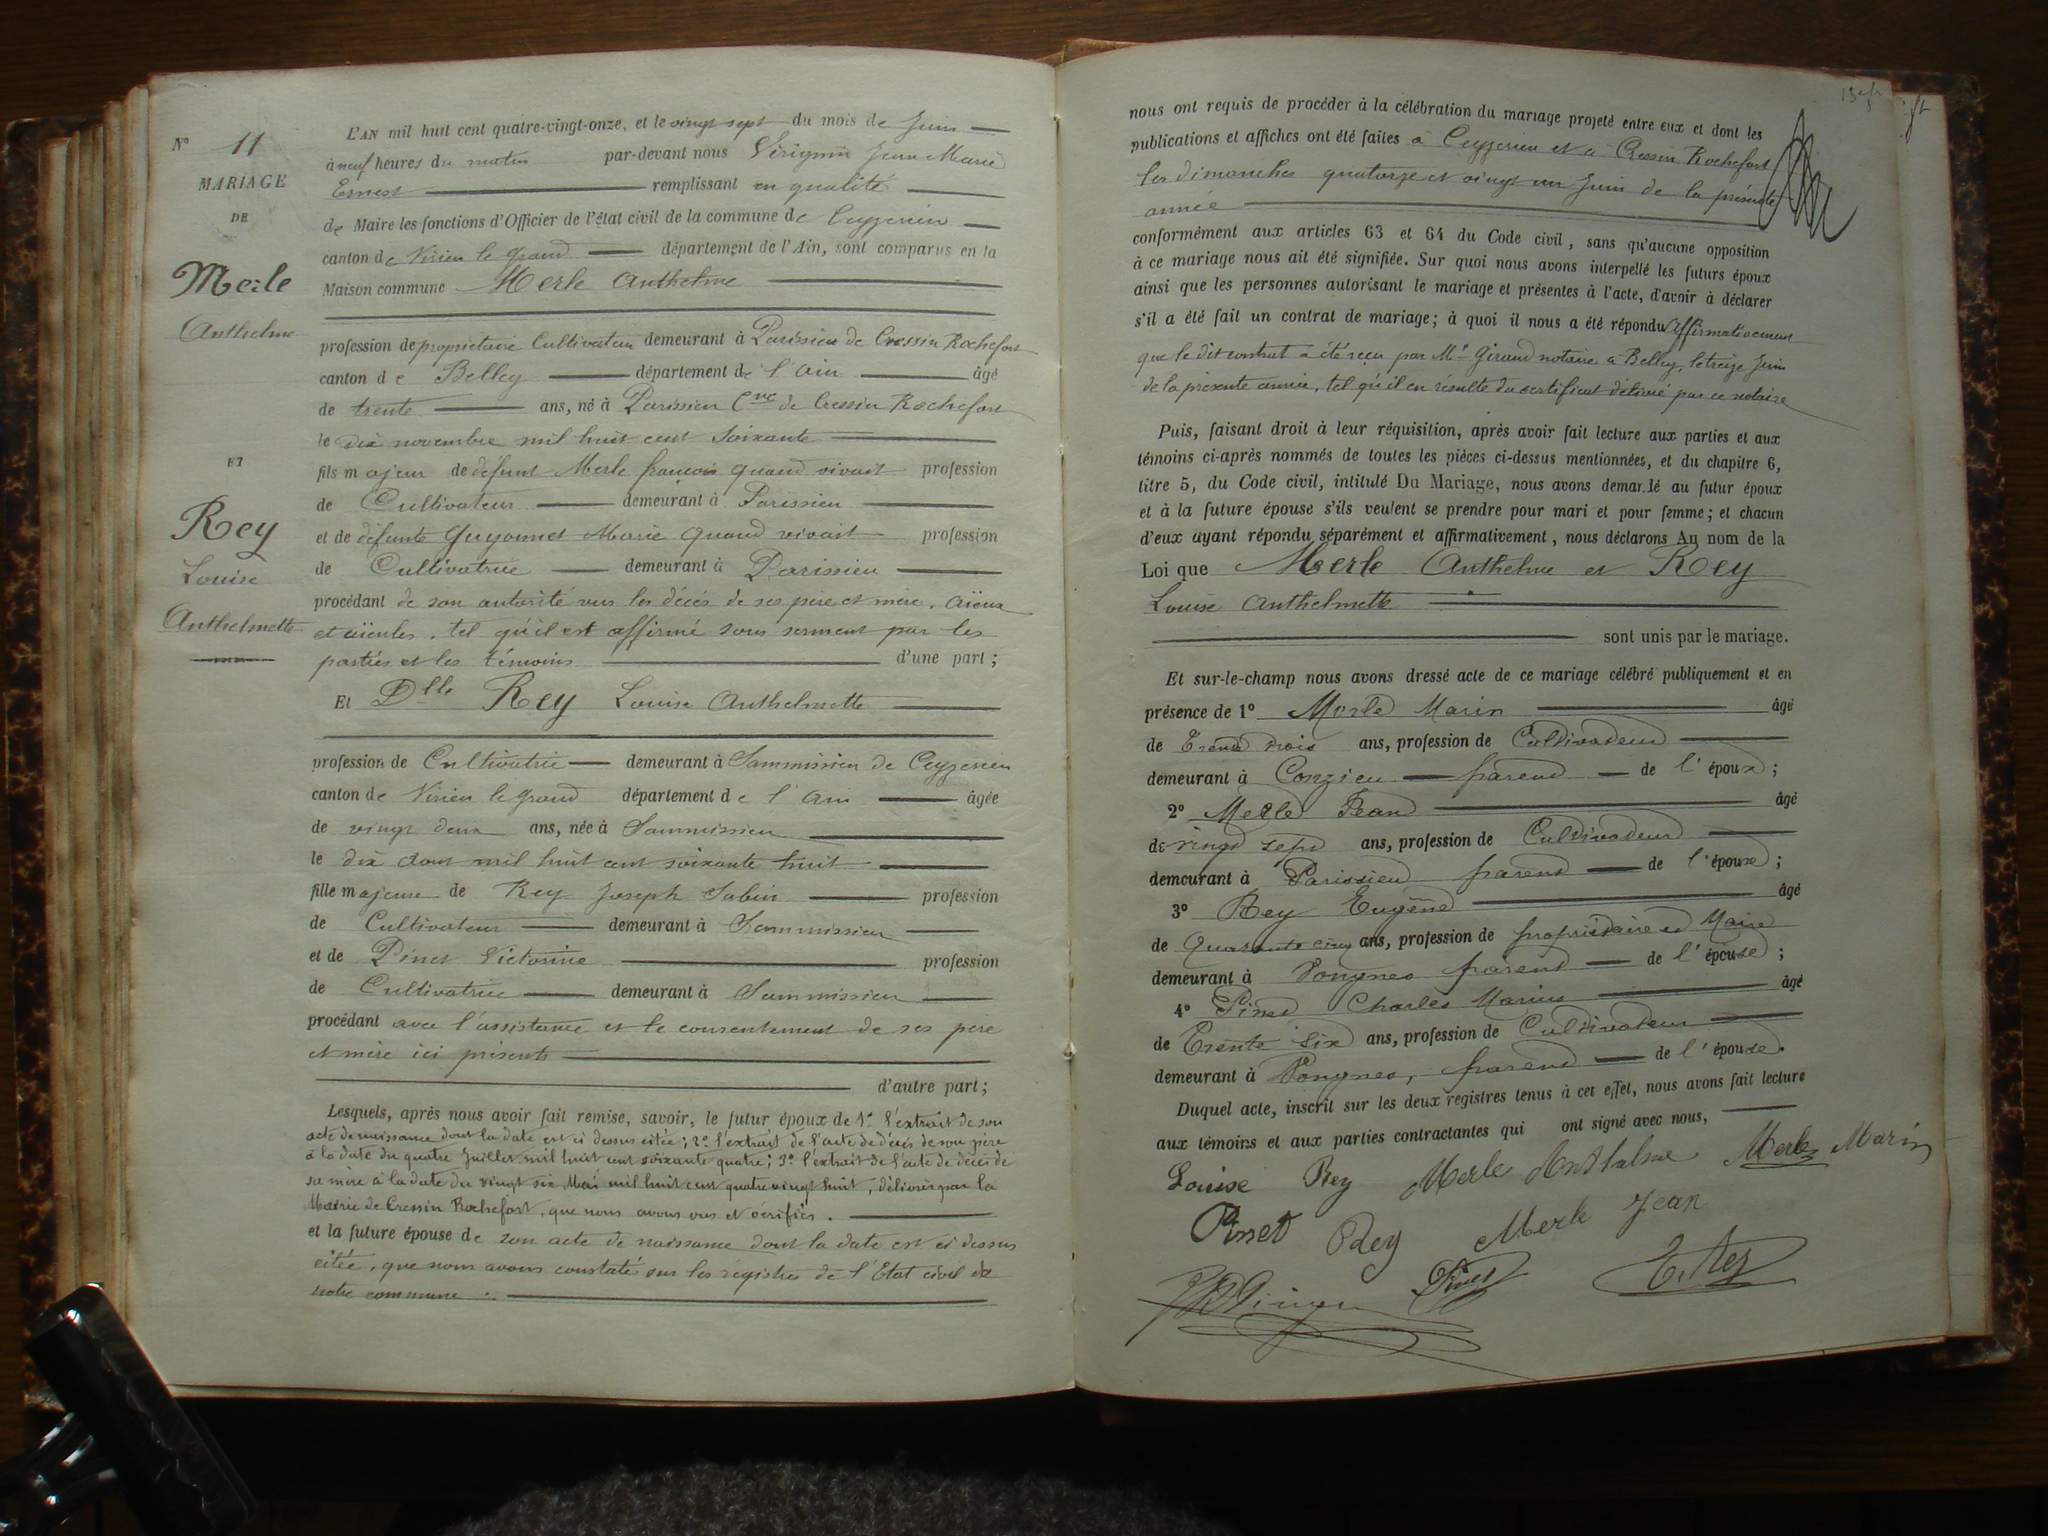 N° 11
MARIAGE
DE
Merle
Anthelme
ET
Rey
Louise
Anthelmette
L'AN mil huit cent quatre-vingt-onze, et le vingt sept du mois de Juin
à neuf heures du matin par-devant nous Virignin Jean Marie
Ernest remplissant en qualité
de Maire les fonctions d'Officier de l'état civil de la commune de Ceyzerieu
canton de Virieu le grand département de l'Ain, sont comparus en la
Maison commune Merle Anthelme
profession de propriétaire Cultivateur demeurant à Parissieu de Cressin Rochefort
canton de Belley département de l'Ain âgé
de trente ans, né à Parissieu Cne de Cressin Rochefort
le dix novembre mil huit cent soixante
fils majeur de défunt Merle françois quand vivait profession
de Cultivateur demeurant à Parissieu
et de défunte Guyonnet Marie quand vivait profession
de Cultivatrice demeurant à Parissieu
procédant de son autorité vus les décès de ses père et mère, aïeux
et aïeules, tel qu'il est affirmé sous serment par les
parties et les témoins d'une part ;
Et Dlle Rey Louise Anthelmette
profession de Cultivatrice demeurant à Sammissieu de Ceyzerieu
canton de Virieu le Grand département de l'Ain âgée
de vingt deux ans, née à Sammissieu
le dix aout mil huit cent soixante huit
fille majeure de Rey Joseph Sabin profession
de Cultivateur demeurant à Sammissieu
et de Pinet Victorine profession
de Cultivatrice demeurant à Sammissieu
procédant avec l'assistance et le consentement de ses père
et mère ici présents
d'autre part ;
Lesquels, après nous avoir fait remise, savoir, le futur époux de 1° l'extrait de son
acte de naissance dont la date est ci dessus citée ; 2° l'extrait de l'acte de décès de son père
à la date du quatre Juillet mil huit cent soixante quatre ; 3° l'extrait de l'acte de décès de
sa mère à la date du vingt six Mai mil huit cent quatre vingt huit, délivrés par la
Mairie de Cressin Rochefort, que nous avons vus et vérifiés.
et la future épouse de son acte de naissance dont la date est ci dessus
citée, que nous avons constaté sur les registres de l'Etat civil de
notre commune.
nous ont requis de procéder à la célébration du mariage projeté entre eux et dont les
publications et affiches ont été faites à Ceyzerieu et à Cressin Rochefort
les dimanches quatorze et vingt un Juin de la présente
année
conformément aux articles 63 et 64 du Code civil, sans qu'aucune opposition
à ce mariage nous ait été signifiée. Sur quoi nous avons interpellé les futurs époux
ainsi que les personnes autorisant le mariage et présentes à l'acte, d'avoir à déclarer
s'il a été fait un contrat de mariage ; à quoi il nous a été répondu affirmativement
que le dit contrat a été reçu par Me Giraud notaire à Belley, le treize Juin
de la présente année, tel qu'il en résulte du certificat délivré par ce notaire
Puis, faisant droit à leur réquisition, après avoir fait lecture aux parties et aux
témoins ci-après nommés de toutes les pièces ci-dessus mentionnées, et du chapitre 6,
titre 5, du Code civil, intitulé Du Mariage, nous avons demandé au futur époux
et à la future épouse s'ils veulent se prendre pour mari et pour femme ; et chacun
d'eux ayant répondu séparément et affirmativement, nous déclarons Au nom de la
Loi que Merle Anthelme et Rey
Louise Anthelmette
sont unis par le mariage.
Et sur-le-champ nous avons dressé acte de ce mariage célébré publiquement et en
présence de 1° Merle Marin âgé
de Trente trois ans, profession de Cultivateur
demeurant à Conzieu parent de l'époux ;
2° Merle Jean âgé
de vingt sept ans, profession de Cultivateur
demeurant à Parissieu parent de l'époux ;
3° Rey Eugène âgé
de Quarante cinq ans, profession de propriétaire et Maire
demeurant à Pongnes parent de l'épouse ;
4° Pinet Charles Marius âgé
de Trente Six ans, profession de Cultivateur
demeurant à Vongnes, parent de l'épouse.
Duquel acte, inscrit sur les deux registres tenus à cet effet, nous avons fait lecture
aux témoins et aux parties contractantes qui ont signé avec nous,
Louise Rey Merle Anthelme Merle Marin
Pinet Rey Merle Jean
Pinet E. Rey